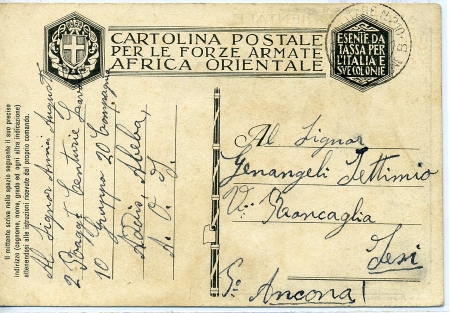 CARTOLINA POSTALE
PER LE FORZE ARMATE
AFRICA ORIENTALE
ESENTE DA
TASSA PER
L'ITALIA E
SVE COLONIE
Il mittente scriva nello spazio seguente il suo preciso
indirizzo (cognome, nome, grado ed ogni altra indicazione)
attenendosi alle istruzioni ricevute dal proprio comando.
Al Signor August
2 Centurie
10 Gruppo 20 Compagnia
Addis Abeba
A. O. I.
Al Signor
Genangeli Settimio
V. Roncaglia
Jesi
Ancona